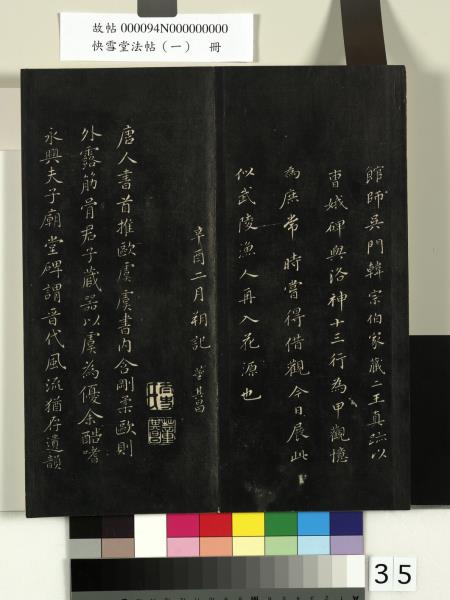 故帖 000094N000000000
快雪堂法帖（一） 冊
館師吳門韓宗伯家藏二王真跡以
曹娥碑與洛神十三行為甲觀憶
為庶常時嘗得借觀今日展此
似武陵漁人再入花源也
辛酉二月朔記 董其昌
唐人書首推歐虞虞書內含剛柔歐則
外露筋骨君子藏器以虞為優余酷嗜
永興夫子廟堂碑謂晉代風流猶存遺韻
35